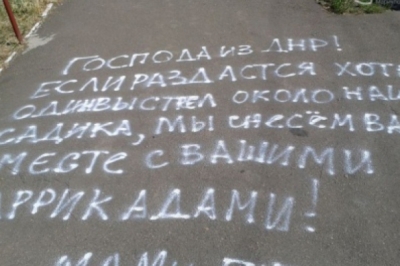 ГОСПОДА ИЗ ДНР!
ЕСЛИ РАЗДАСТСЯ ХОТЯ
ОДИН ВЫСТРЕЛ ОКОЛО НАШ
САДИКА, МЫ СНЕСЁМ ВА
МЕСТЕ С ВАШИМИ
АРРИКАДАМИ!